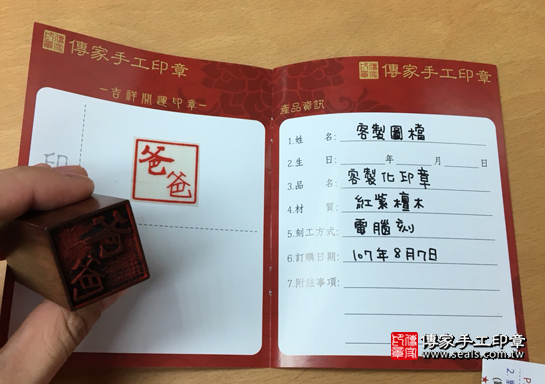 傳家手工印章
－吉祥開運印章－
印
爸爸
傳家手工印章
產品資訊
1.姓 名: 客製圖檔
2.生 日: 年 月 日
3.品 名: 客製化印章
4.材 質: 紅紫檀木
5.刻工方式: 電腦刻
6.訂購日期: 107年8月7日
7.附註事項:
傳家手工印章
www.seals.com.tw